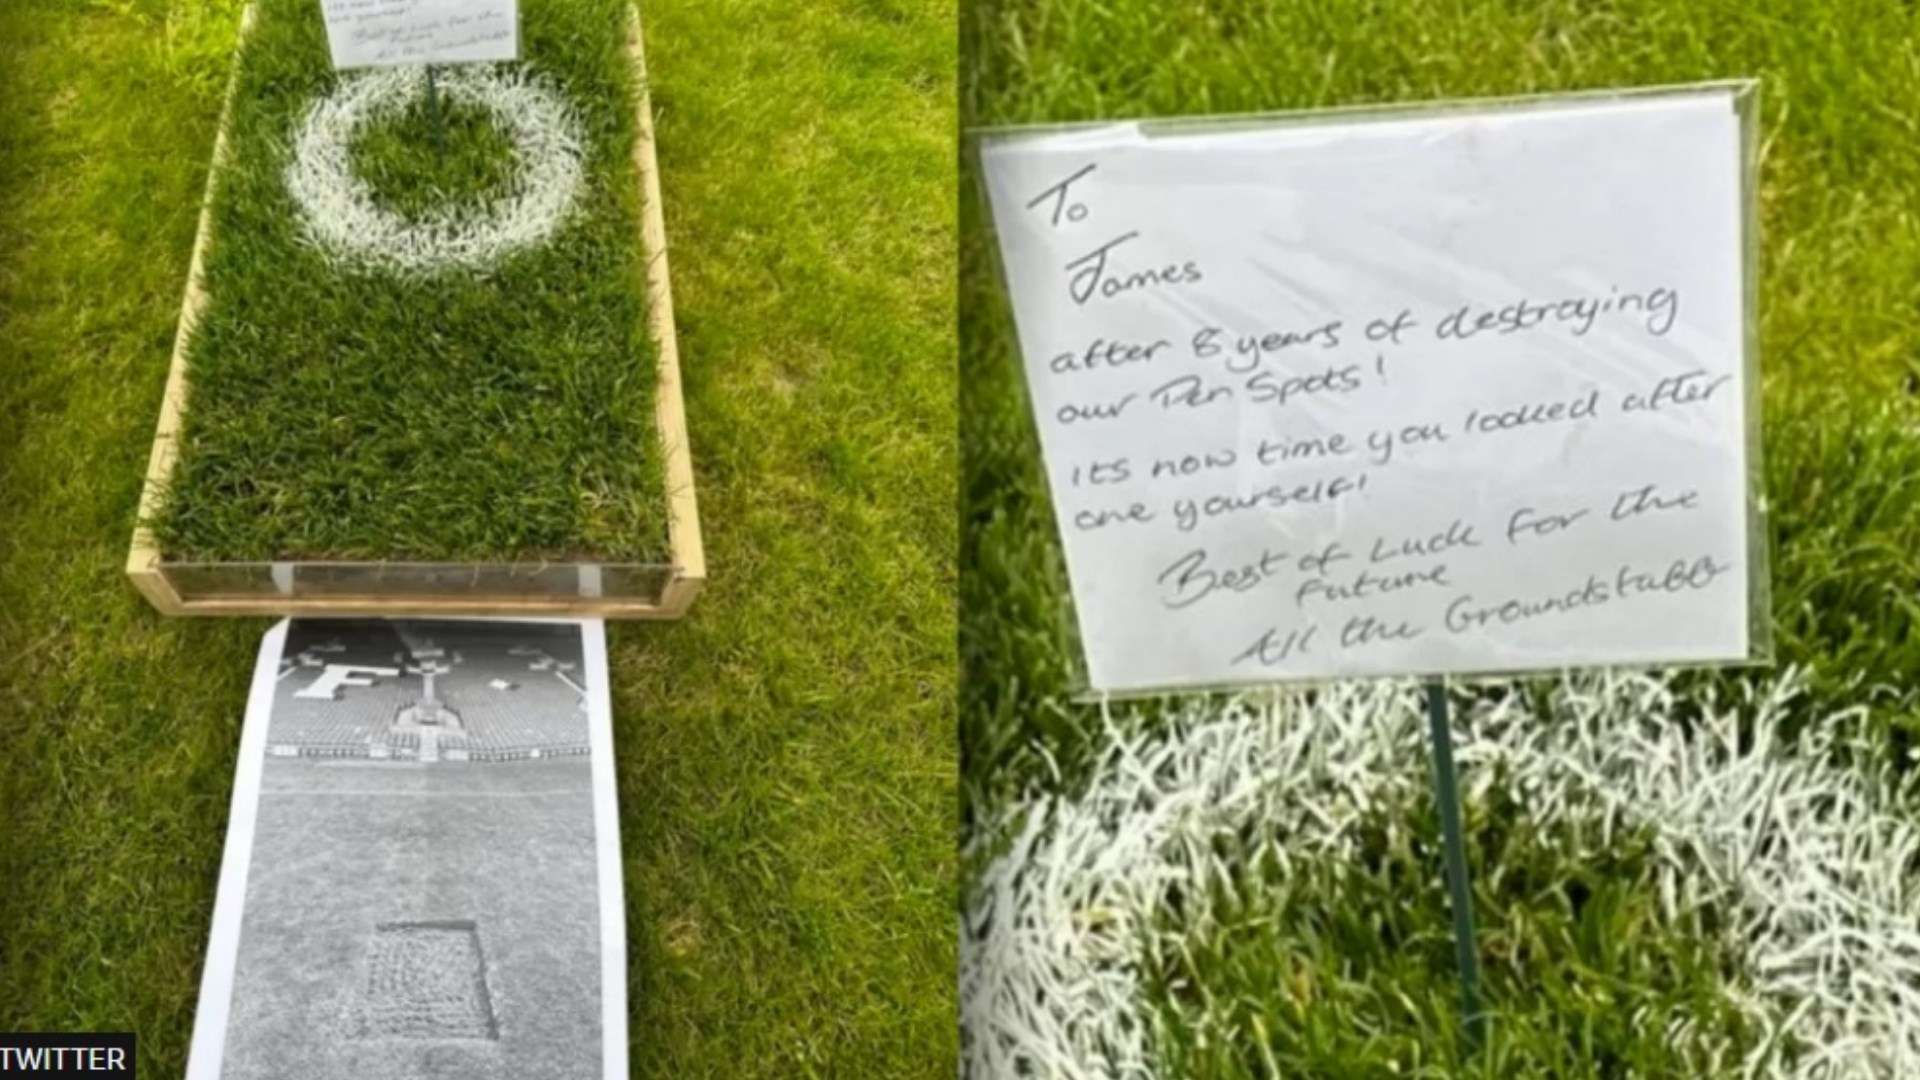 its now
one yourself!
Best of Luck for the
Future
All the Groundstaff
F
TWITTER
To
James
after 8 years of destroying
our Pen Spots!
its now time you looked after
one yourself!
Best of Luck for the
Future
All the Groundstaff